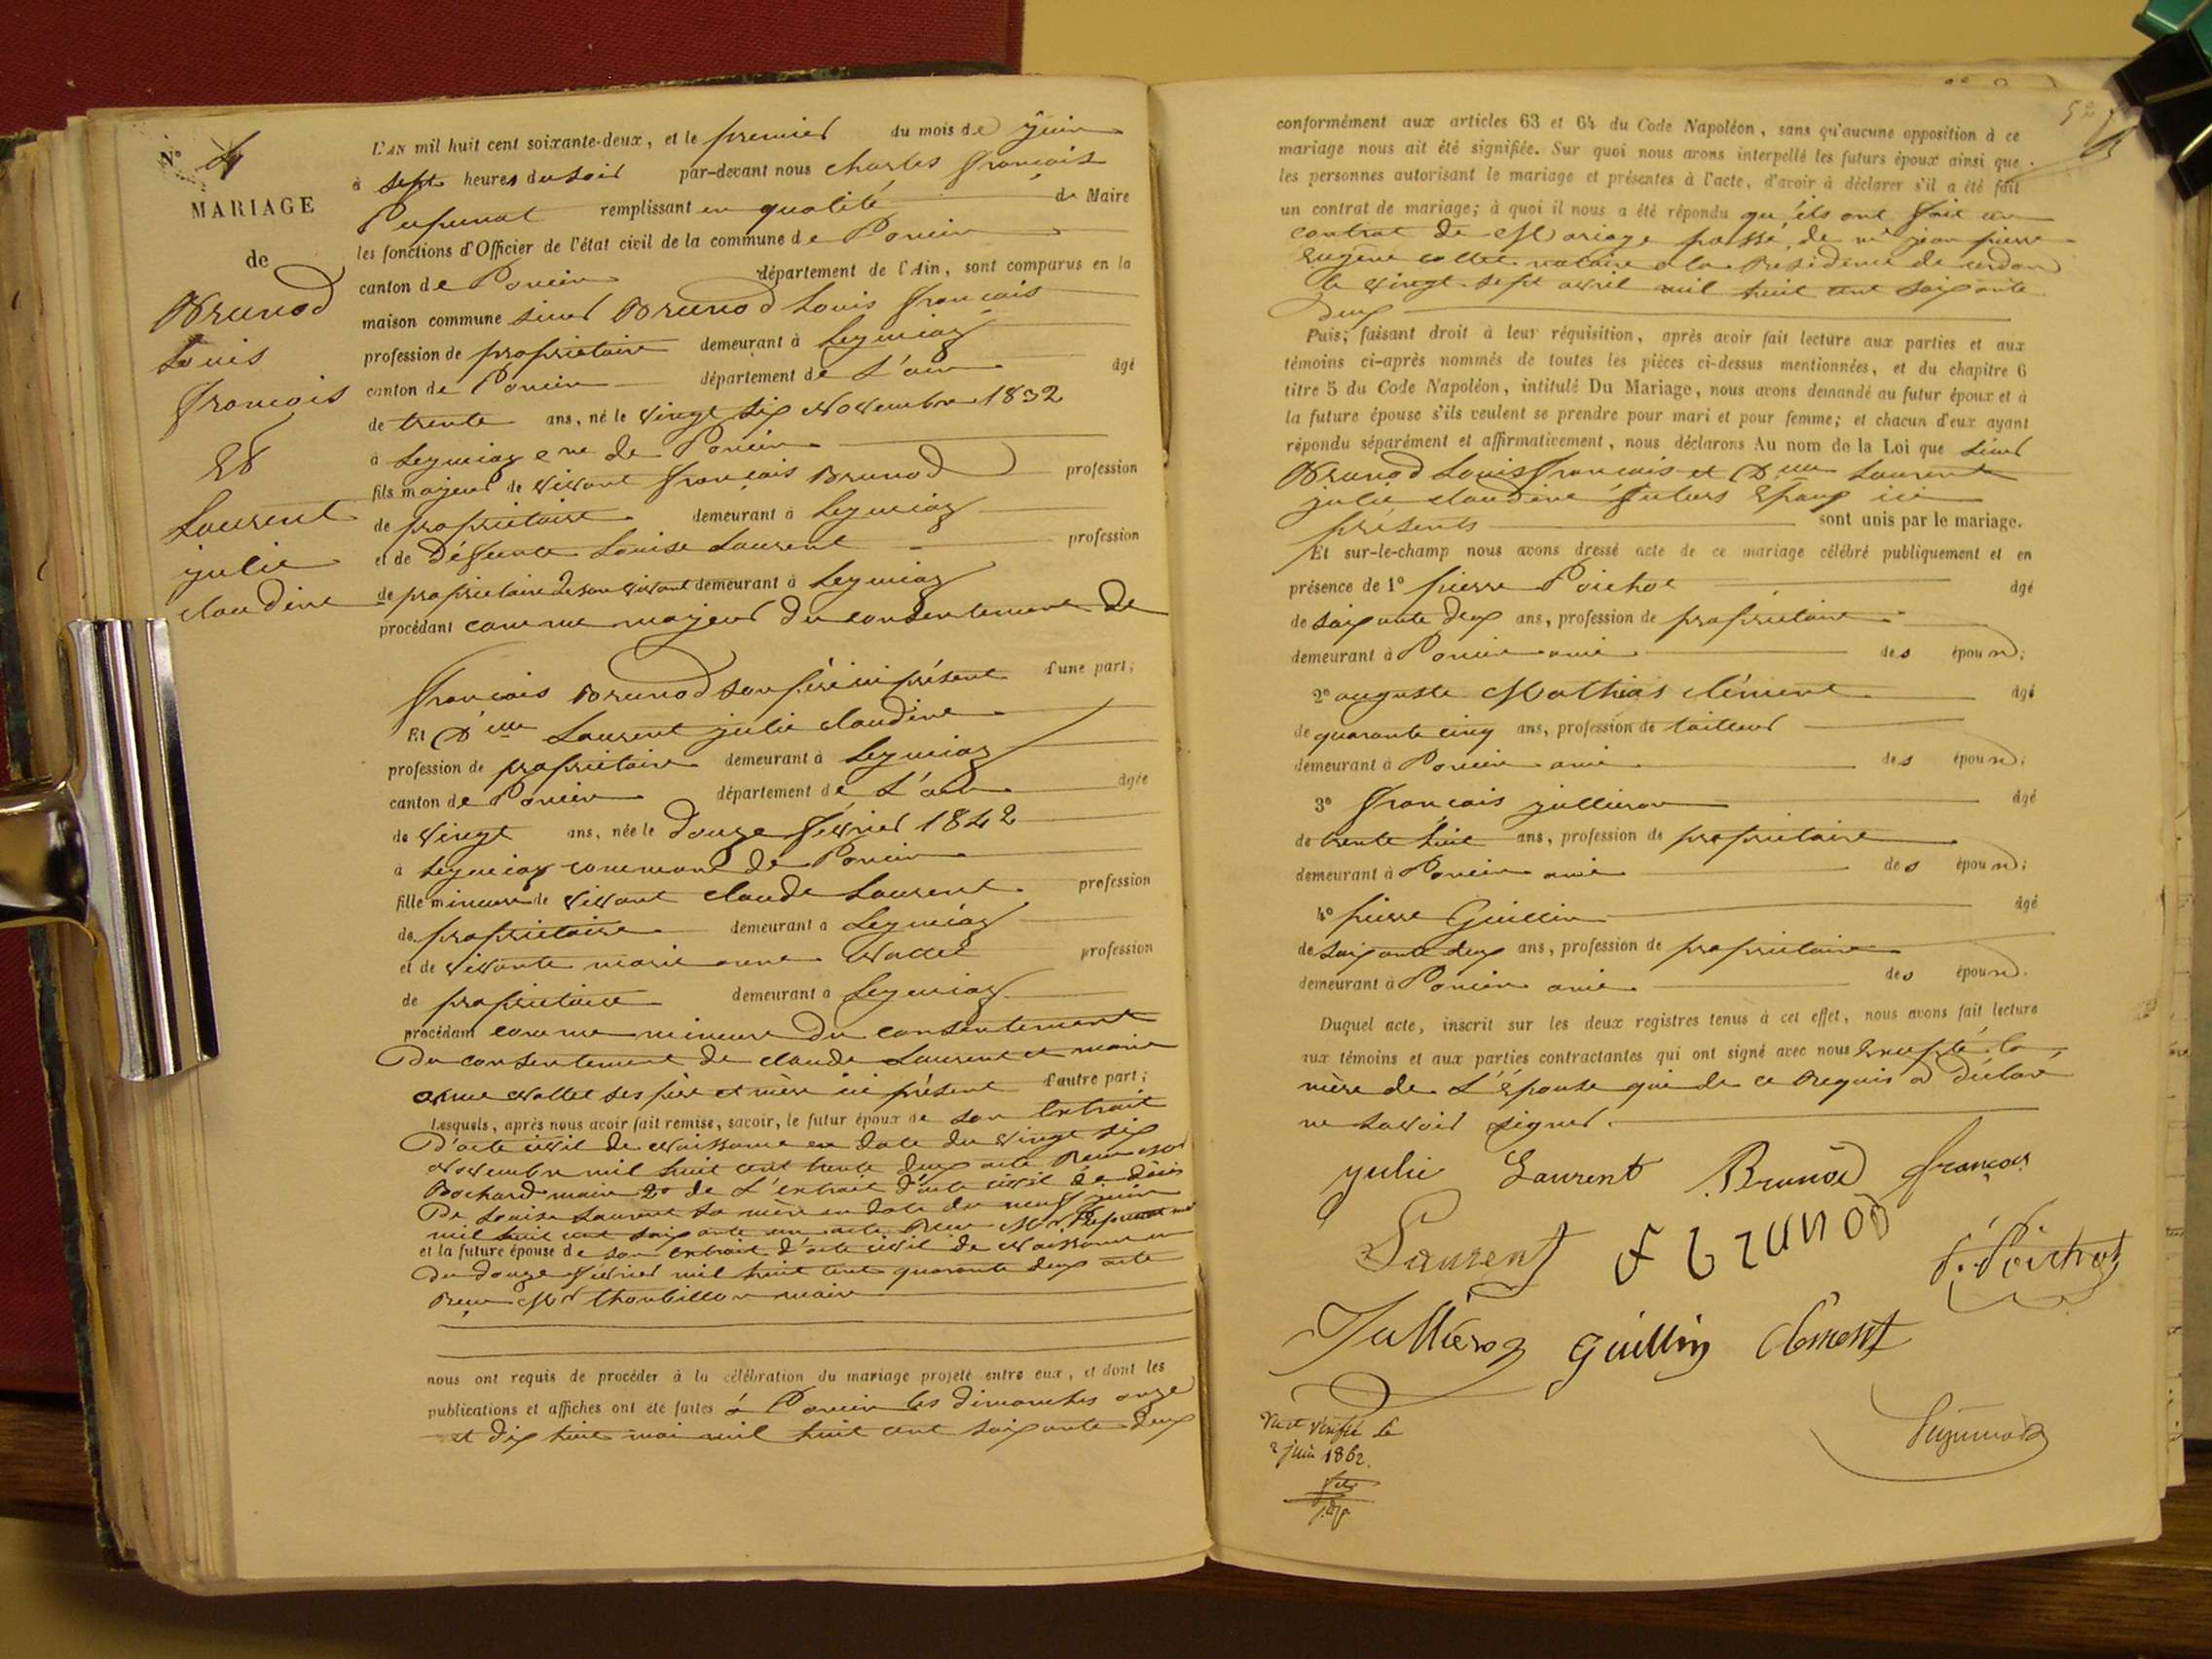 N° 4
MARIAGE
de
Brunod
Louis
François
Et
Laurent
julie
claudine
L'AN mil huit cent soixante-deux, et le premier du mois de juin
à sept heures du soir par-devant nous charles françois
remplissant en qualité de Maire
les fonctions d'Officier de l'état civil de la commune de Poncin
canton de Poncin département de l'Ain, sont comparus en la
maison commune sieur Brunod Louis françois
profession de propriétaire demeurant à Leymiaz
canton de Poncin département de L'ain âgé
de trente ans, né le vingt six Novembre 1832
à Leymiaz cne de Poncin
fils majeur de vivant françois Brunod profession
de propriétaire demeurant à Leymiaz
et de Défunte Louise Laurent profession
de propriétaire de son vivant demeurant à Leymiaz
procédant comme majeur du consentement de
françois Brunod son père ici présent d'une part;
Et Dlle Laurent julie claudine
profession de propriétaire demeurant à Leymiaz
canton de Poncin département de L'ain âgée
de vingt ans, née le douze février 1842
à Leymiaz commune de Poncin
fille mineure de vivant claude Laurent profession
de propriétaire demeurant à Leymiaz
et de vivante marie anne Vallet profession
de propriétaire demeurant à Leymiaz
procédant comme mineure du consentement
Du consentement de claude Laurent et marie
anne Vallet ses père et mère ici présent d'autre part;
Lesquels, après nous avoir fait remise, savoir, le futur époux de son Extrait
D'acte civil de Naissance en date du vingt six
Novembre mil huit cent trente deux acte Reçu Mr
Bochard maire 2° de L'extrait d'acte civil de décès
De Louise Laurent sa mère en date du neuf juin
mil huit cent soixante un acte Reçu Mr
et la future épouse de son Extrait d'acte civil de Naissance en
du douze février mil huit cent quarante deux acte
Reçu Mr maire
nous ont requis de procéder à la célébration du mariage projeté entre eux, et dont les
publications et affiches ont été faites à Poncin les dimanches onze
et dix huit mai mil huit cent soixante deux
52
conformément aux articles 63 et 64 du Code Napoléon, sans qu'aucune opposition à ce
mariage nous ait été signifiée. Sur quoi nous avons interpellé les futurs époux ainsi que
les personnes autorisant le mariage et présentes à l'acte, d'avoir à déclarer s'il a été fait
un contrat de mariage; à quoi il nous a été répondu qu'ils ont fait un
contrat de Mariage passé de me jean pierre
Eugène notaire a la Residence de cerdon
le vingt sept avril mil huit cent soixante
deux
Puis, faisant droit à leur réquisition, après avoir fait lecture aux parties et aux
témoins ci-après nommés de toutes les pièces ci-dessus mentionnées, et du chapitre 6
titre 5 du Code Napoléon, intitulé Du Mariage, nous avons demandé au futur époux et à
la future épouse s'ils veulent se prendre pour mari et pour femme; et chacun d'eux ayant
répondu séparément et affirmativement, nous déclarons Au nom de la Loi que sieur
Brunod Louis françois et Dlle Laurent
julie claudine futurs Epoux ici
présents sont unis par le mariage.
Et sur-le-champ nous avons dressé acte de ce mariage célébré publiquement et en
présence de 1° pierre Poichot âgé
de soixante deux ans, profession de propriétaire
demeurant à Poncin ami des époux;
2° auguste Mathias clément âgé
de quarante cinq ans, profession de tailleur
demeurant à Poncin ami des époux;
3° françois jullieron âgé
de trente huit ans, profession de propriétaire
demeurant à Poncin ami des époux;
4° pierre Guillin âgé
de soixante deux ans, profession de propriétaire
demeurant à Poncin ami des époux.
Duquel acte, inscrit sur les deux registres tenus à cet effet, nous avons fait lecture
aux témoins et aux parties contractantes qui ont signé avec nous Excepté la
mère de L'Epouse qui de ce Requis a déclaré
ne savoir signer.
julie Laurent Brunod françois
Laurent F brunod P. Poichot
Jullieron Guillin Clément
Vu et vérifié le
2 juin 1862.